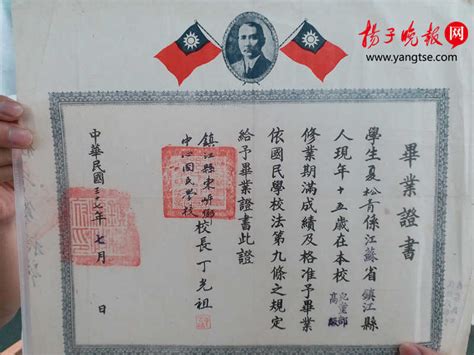 扬子晚报网
www.yangtse.com
畢業證書
學生夏松青係江蘇省鎮江縣
人現年十五歲在本校兒童部
高級
修業期滿成績及格准予畢業
依國民學校法第九條之規定
給予畢業證書此證
鎮江縣東鄉
中心國民學校
校長丁光祖
中華民國年七月 日